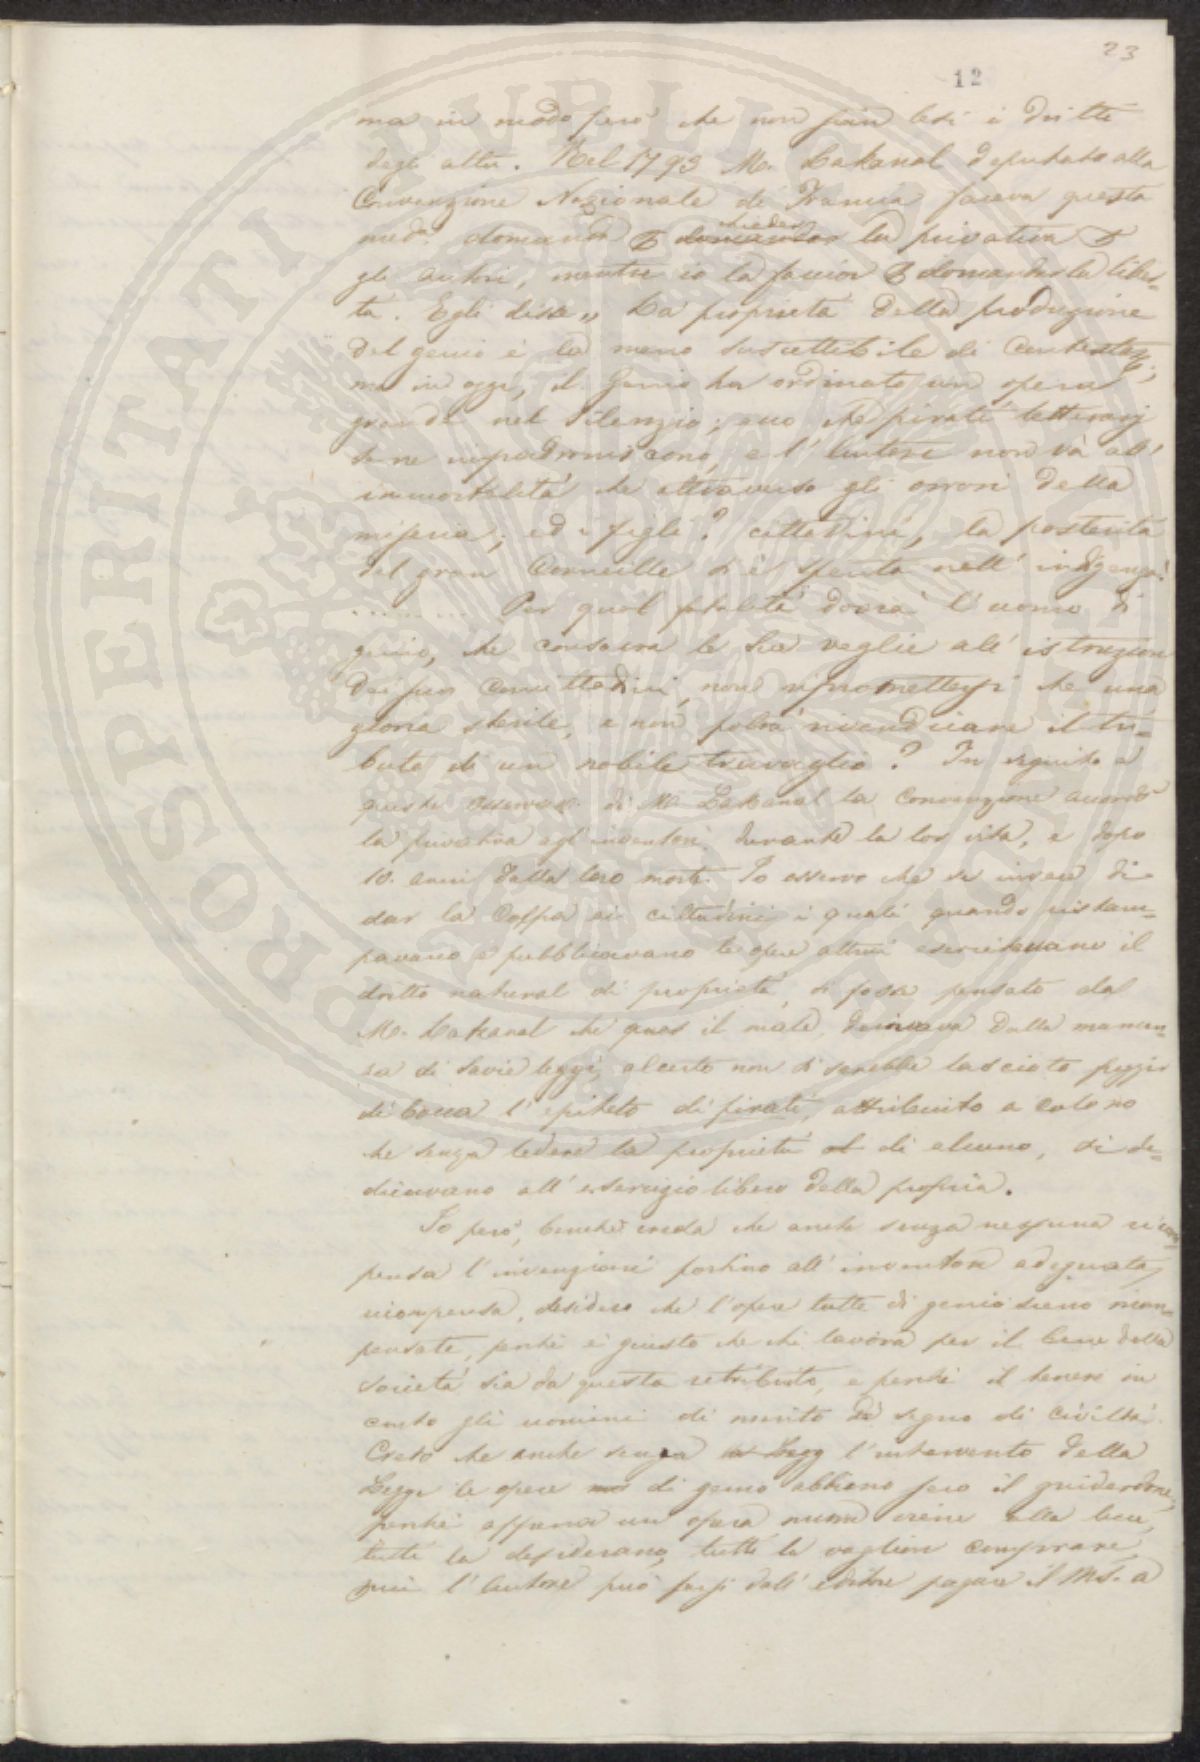 23
12
ma in modo però che non sian lesi i dritti
degli altri. Nel 1793 M. Lakanal deputato alla
Convenzione Nazionale di Francia faceva questa
med.a domanda chieder la privativa
gli autori, mentre io la faccio domandar la liber-
tà. Egli disse „ La proprietà della produzione
del genio è la meno suscettibile di
ma in oggi, il Genio ha ordinato un opera
grande nel silenzio; pirati letterarj
se ne impadroniscono, e l'Autore non và all'
immortalità che attraverso gli orrori della
miseria; ed i figli? cittadini, la posterità
del gran Corneille si è spenta nell'indigenza!
.......... Per qual fatalità dovrà l'uomo di
genio, che consacra le sue veglie all'istruzione
dei suoi concittadini, non ripromettersi che una
gloria sterile, e non potrà rivendicare il tri-
buto di un nobile travaglio? In seguito a
queste osservaz. di M. Lakanal la Convenzione accordò
la privativa agl'inventori durante la lor vita, e dopo
10. anni dalla loro morte. Io osservo che se invece di
dar la colpa ai cittadini i quali quando ristam-
pavano e pubblicavano le opere altrui esercitavano il
dritto natural di proprietà, si fosse pensato dal
M. Lakanal che il male derivava dalla mancan-
za di savie leggi, al certo non si sarebbe lasciato fuggir
di bocca l'epiteto di pirati, attribuito a coloro
che senza ledere la proprietà di alcuno, si de-
dicavano all'esercizio libero della propria.
Io però, benchè creda che anche senza nessuna ricom-
pensa l'invenzioni portino all'inventore adeguata
ricompensa, desidero che l'opere tutte di genio sieno ricom-
pensate, perchè è giusto che chi lavora per il bene della
società sia da questa retribuito, e perchè il tenere in
conto gli uomini di merito è segno di civiltà.
Credo che anche senza Legg l'intervento della
Legge le opere di genio abbiano il guiderdone,
perchè appena un opera nuova viene alla luce,
tutti la desiderano, tutti la voglion comprare,
l'Autore può farsi dall'editore pagare il MS. a
PROSPERITATI PUBLICAE